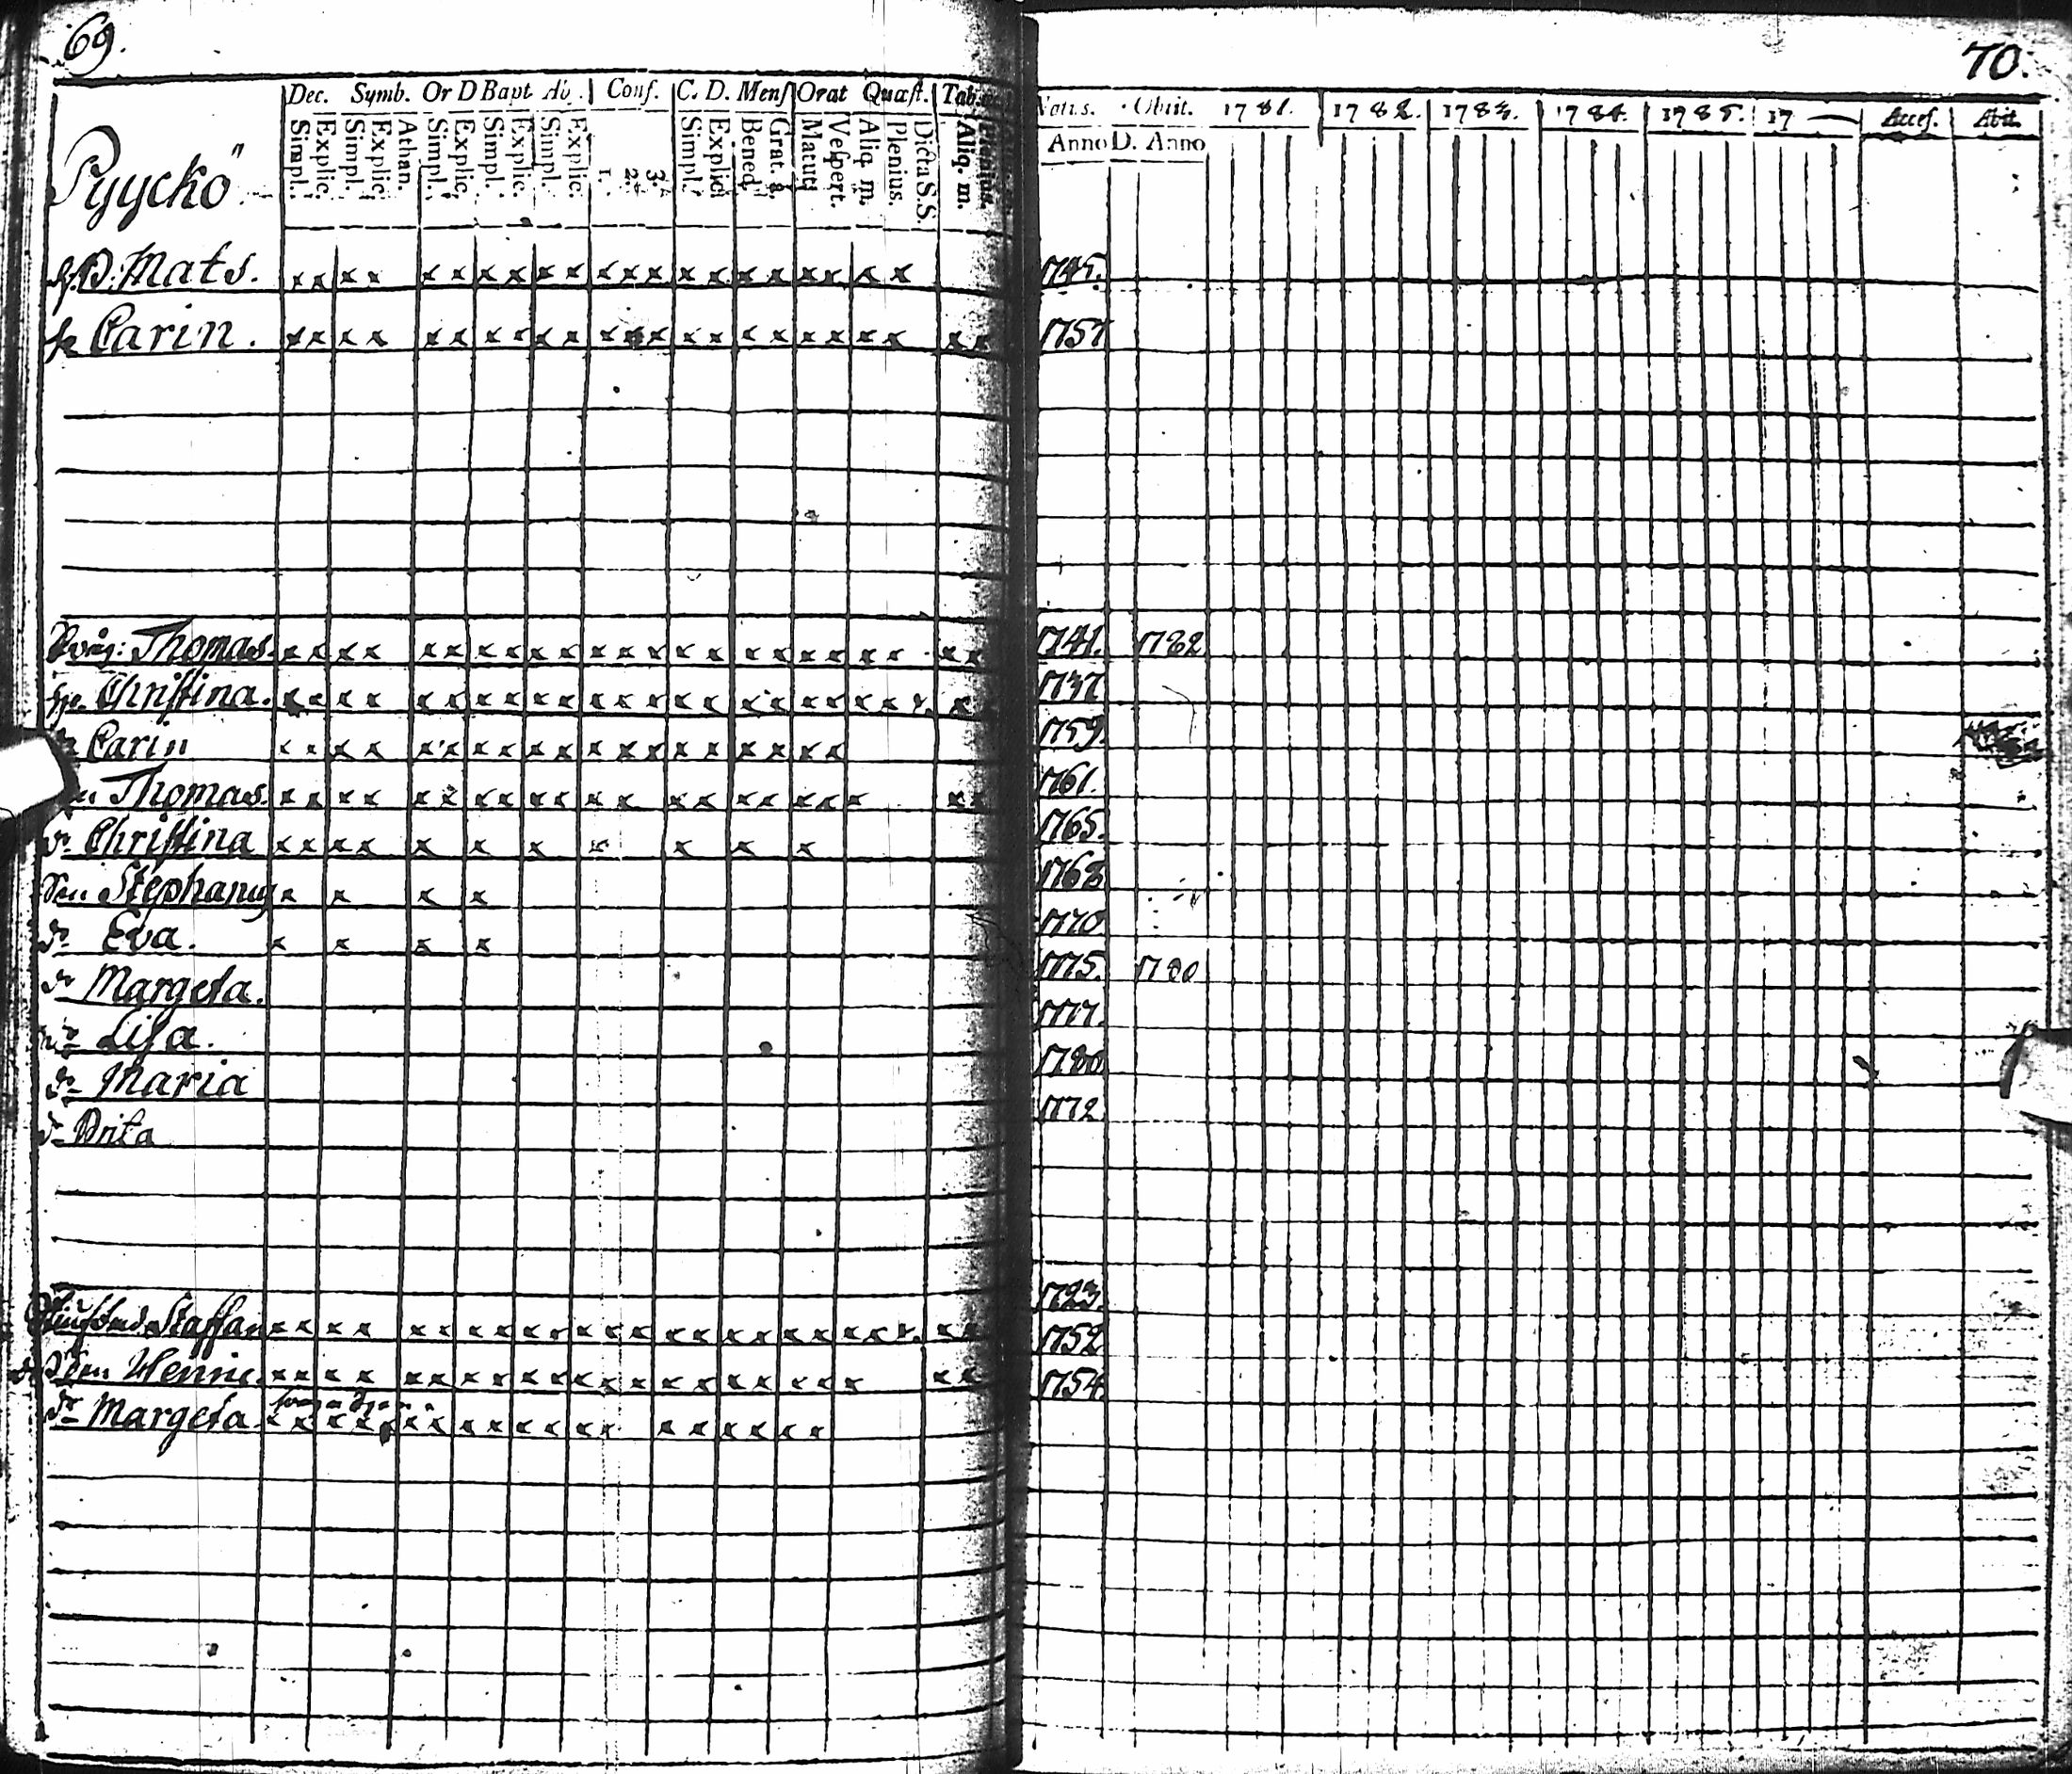 69.
Dec. Symb. Or D Bapt Ab. Conf. C. D. Mens Orat Quæst. Tab.
Simpl. Explic. Simpl. Explic. Athan. Simpl. Explic. Simpl. Explic. Simpl. Explic. 1. 2. 3. Simpl. Explic. Bened. Grat. a. Matut. Vespert. Aliq. m. Plenius. Dicta S.S. Aliq. m. Plenius.
Pyyckö
Mats. x x x x x x x x x x x x x x x x x x x x x
Carin. x x x x x x x x x x x x x x x x x x x x x x x
Thomas. x x x x x x x x x x x x x x x x x x x x x x x
Christina. x x x x x x x x x x x x x x x x x x x x x x x
Carin x x x x x x x x x x x x x x x x x x x
Thomas. x x x x x x x x x x x x x x x x x x x x x
Christina x x x x x x x x x x x
Son Stephanus x x x x
dr Eva. x x x x
dr Margeta.
dr Lisa.
dr Maria
dr Brita
Staffan x x x x x x x x x x x x x x x x x x x x x x x x
Henric. x x x x x x x x x x x x x x x x x x x x x x
dr Margeta. x x x x x x x x x x x x x x x x x x
70.
Natus. Obiit. 1781. 1782. 1783. 1784. 1785. 17 Acces. Abit.
Anno D. Anno
1745.
1757
1741. 1782
1737
1759.
1761.
1765.
1768
1770
1775. 1780
1777.
1780
1772
1723.
1752
1754.